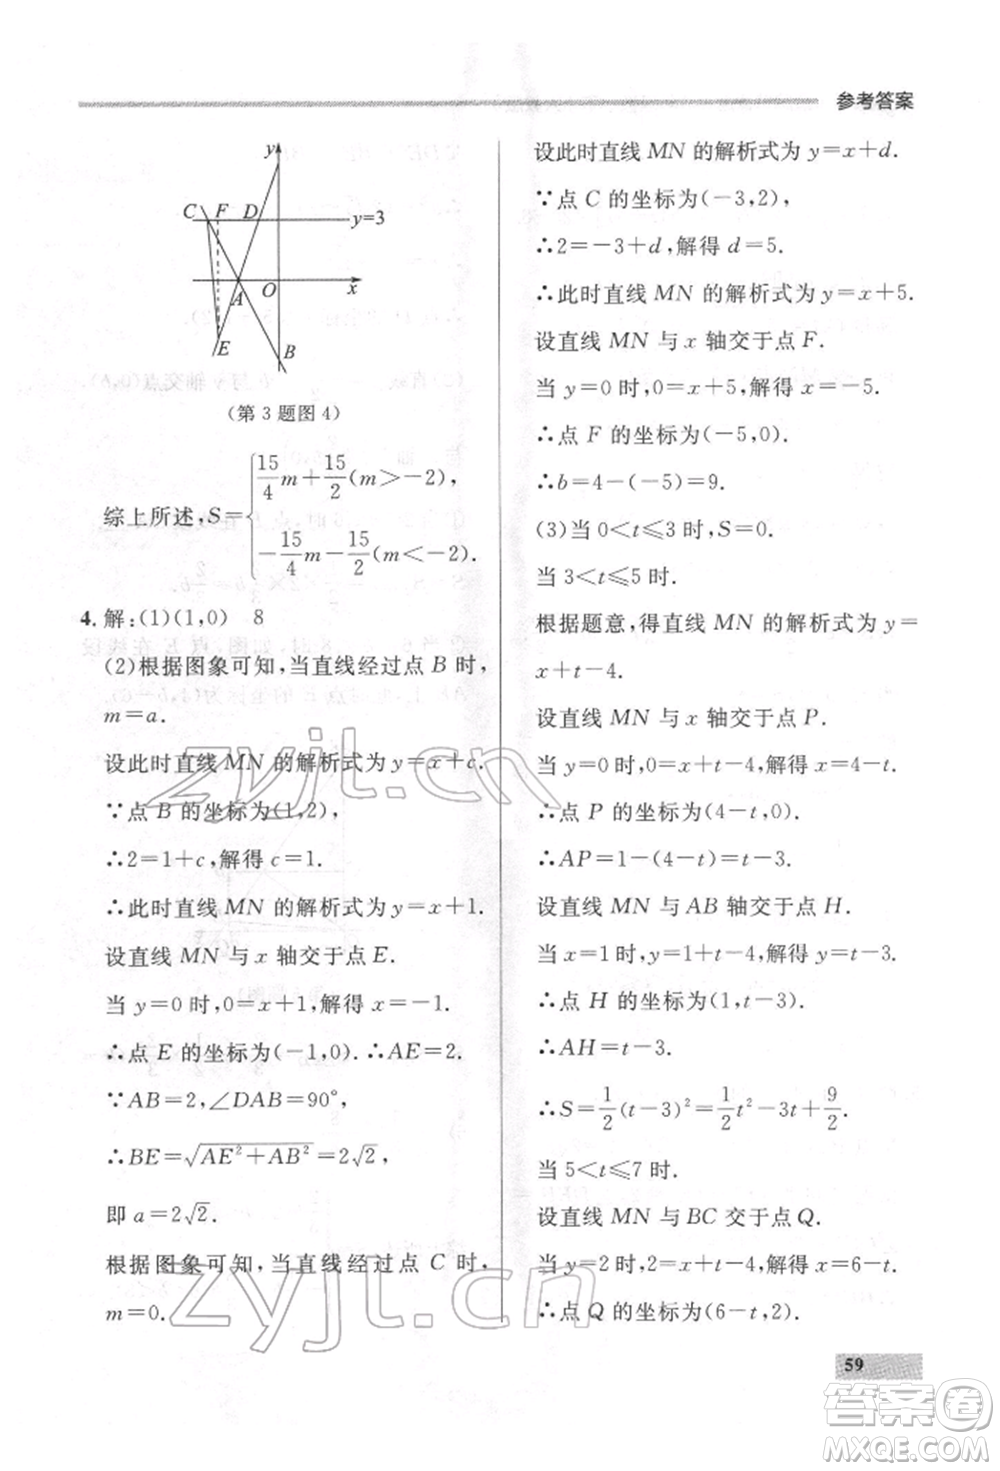 参考答案
y
C F D
y=3
A O x
E
B
(第 3 题图 4)
综上所述,S={15/4 m+15/2(m>-2),
-15/4 m-15/2(m<-2).
4. 解:(1)(1,0) 8
(2)根据图象可知,当直线经过点 B 时,
m=a.
设此时直线 MN 的解析式为 y=x+c.
∵点 B 的坐标为(1,2),
∴2=1+c,解得 c=1.
∴此时直线 MN 的解析式为 y=x+1.
设直线 MN 与 x 轴交于点 E.
当 y=0 时,0=x+1,解得 x=-1.
∴点 E 的坐标为(-1,0).∴AE=2.
∵AB=2,∠DAB=90°,
∴BE=√(AE²+AB²)=2√2,
即 a=2√2.
根据图象可知,当直线经过点 C 时,
m=0.
设此时直线 MN 的解析式为 y=x+d.
∵点 C 的坐标为(-3,2),
∴2=-3+d,解得 d=5.
∴此时直线 MN 的解析式为 y=x+5.
设直线 MN 与 x 轴交于点 F.
当 y=0 时,0=x+5,解得 x=-5.
∴点 F 的坐标为(-5,0).
∴b=4-(-5)=9.
(3)当 0<t≤3 时,S=0.
当 3<t≤5 时,
根据题意,得直线 MN 的解析式为 y=
x+t-4.
设直线 MN 与 x 轴交于点 P.
当 y=0 时,0=x+t-4,解得 x=4-t.
∴点 P 的坐标为(4-t,0).
∴AP=1-(4-t)=t-3.
设直线 MN 与 AB 轴交于点 H.
当 x=1 时,y=1+t-4,y=t-3.
∴点 H 的坐标为(1,t-3).
∴AH=t-3.
∴S=1/2(t-3)²=1/2t²-3t+9/2.
当 5<t≤7 时,
设直线 MN 与 BC 交于点 Q.
当 y=2 时,2=x+t-4,解得 x=6-t.
∴点 Q 的坐标为(6-t,2).
59
zyjt.cn
zyjt.cn
答案卷
MXQE.COM